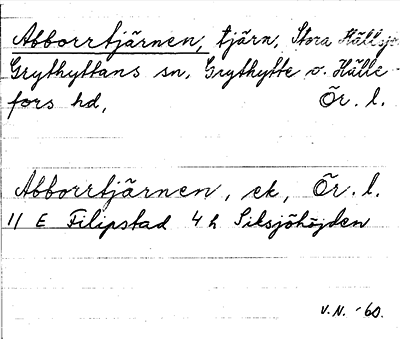 Abborrtjärnen, tjärn, Stora Hällsjö
Grythyttans sn, Grythytte o. Hälle
fors hd, Ör. l.
Abborrtjärnen, ek, Ör. l.
11 E Filipstad 4 h Siksjöhöjden
V.N. -60.